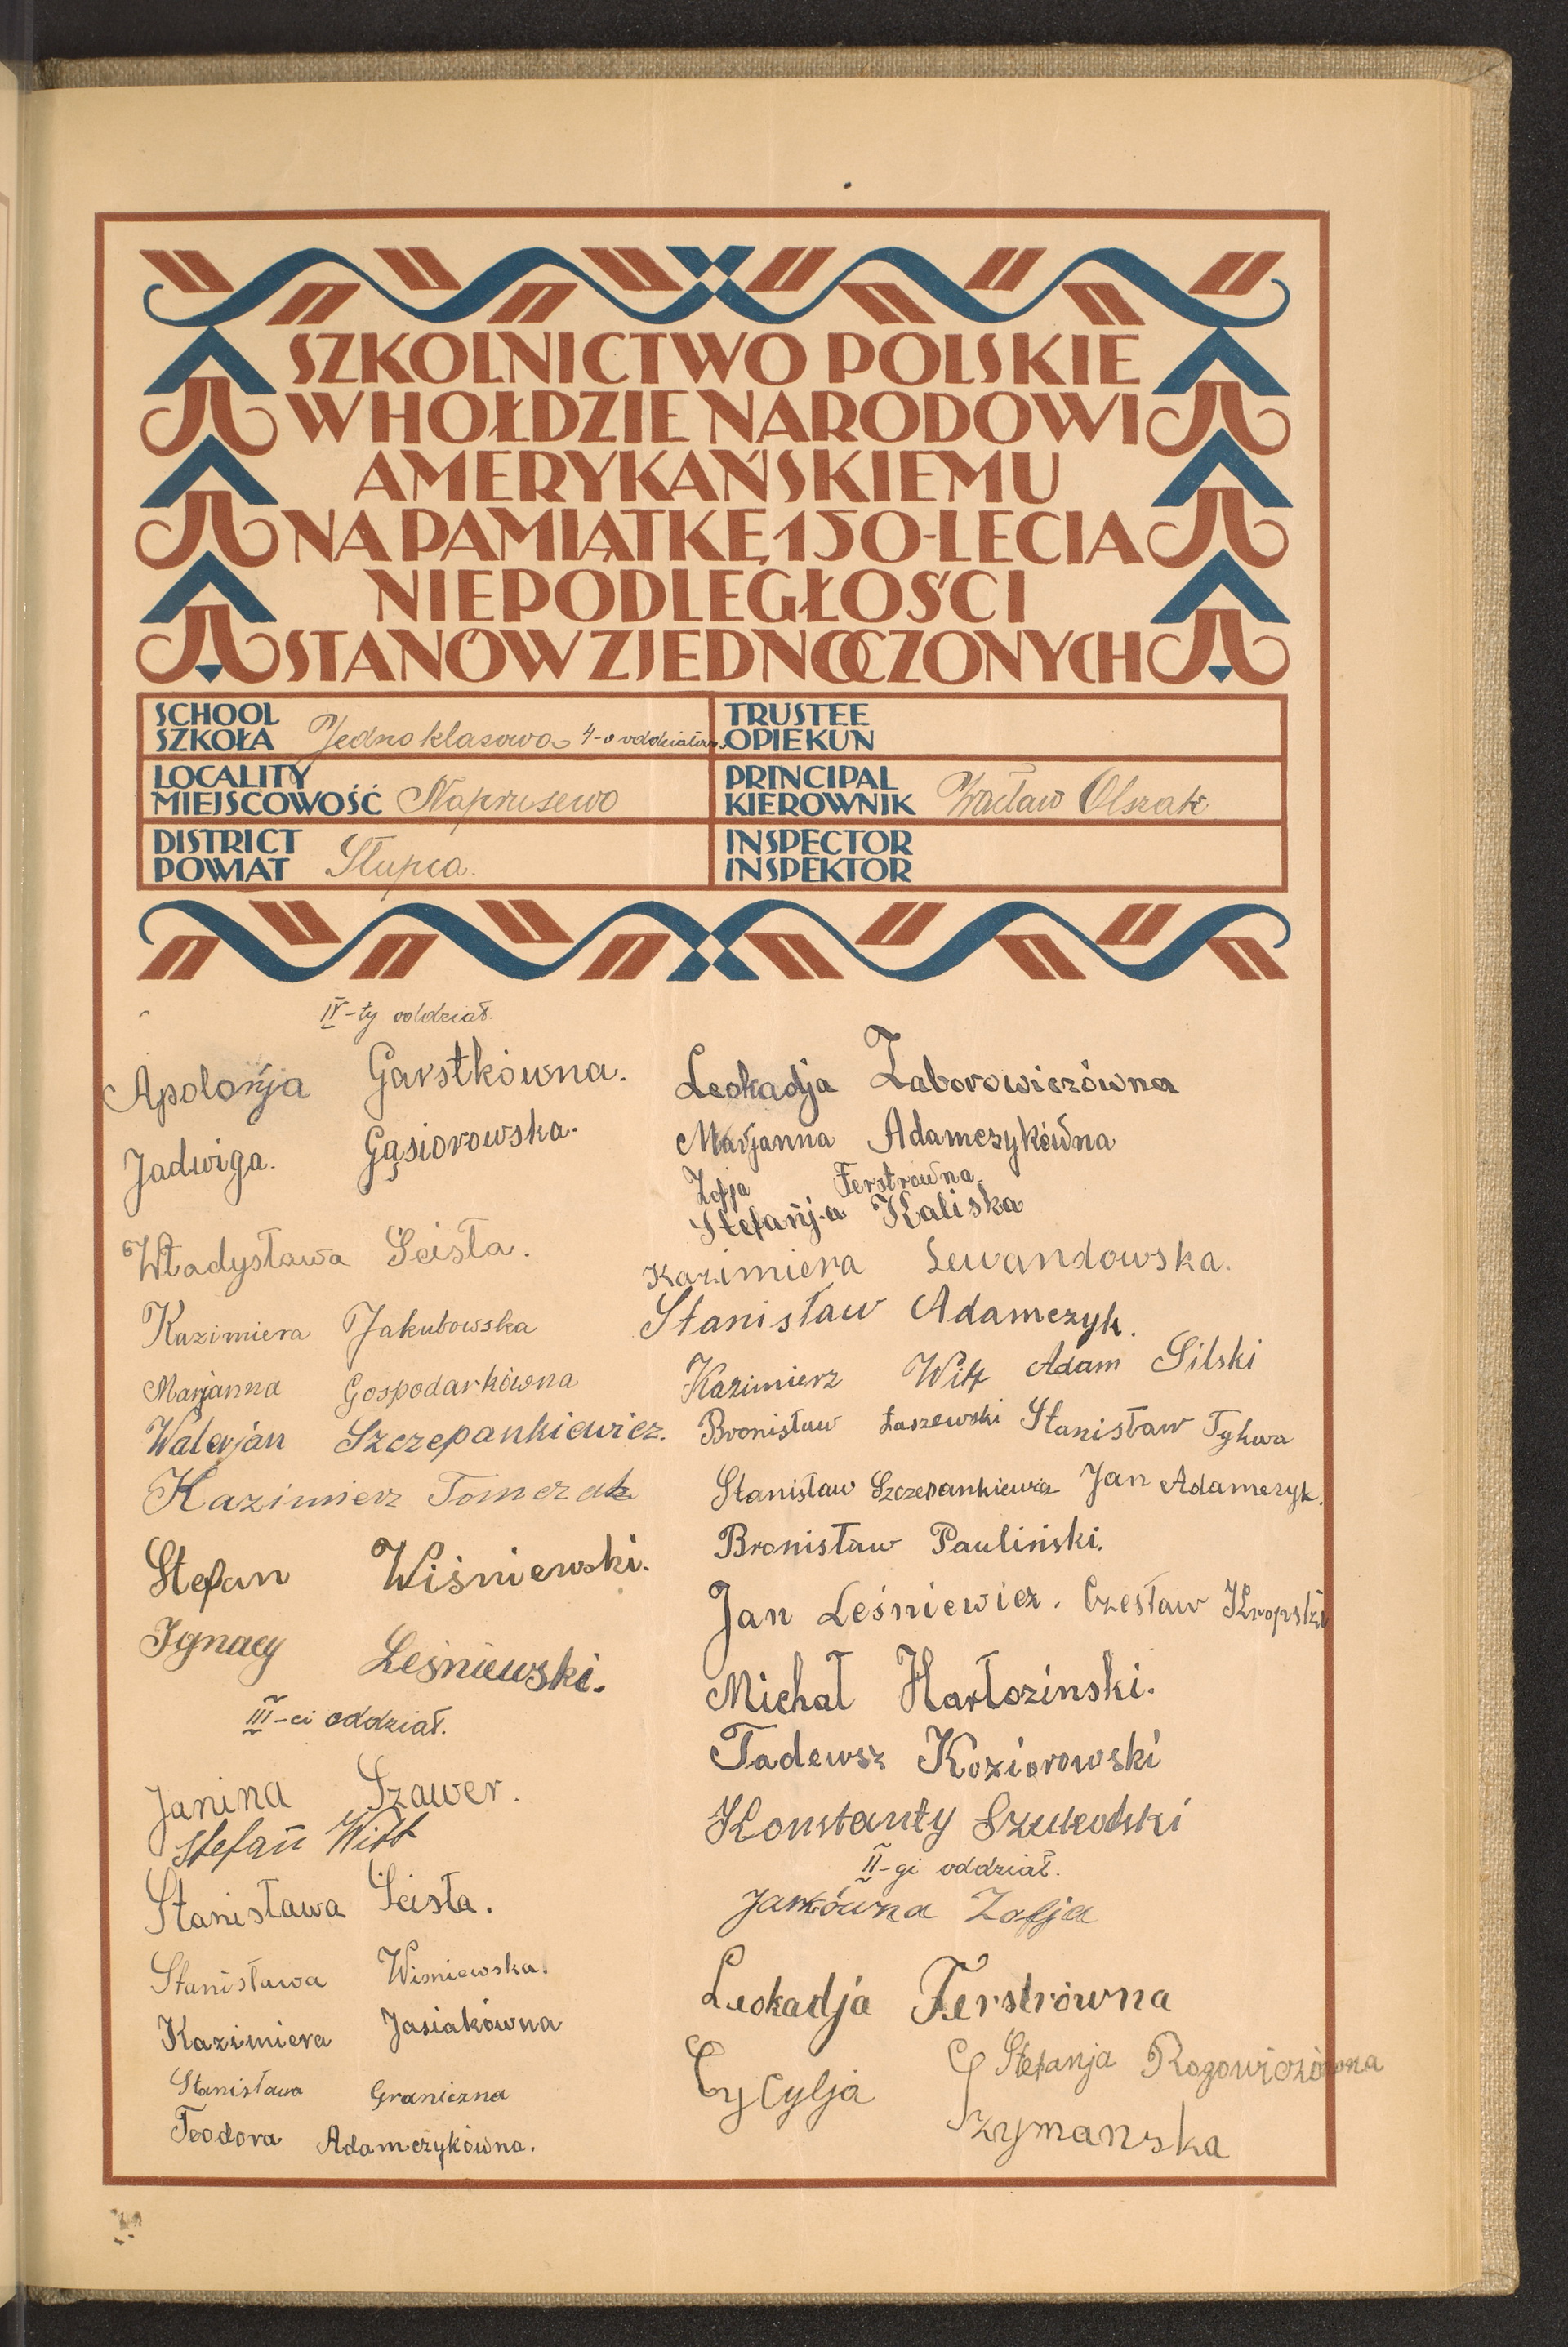 SZKOLNICTWO POLSKIE
W HOŁDZIE NARODOWI
AMERYKAŃSKIEMU
NA PAMIĄTKĘ 150-LECIA
NIEPODLEGŁOŚCI
STANÓW ZJEDNOCZONYCH
SCHOOL
SZKOŁA Jednoklasowa 4-o oddziałow.
TRUSTEE
OPIEKUN
LOCALITY
MIEJSCOWOŚĆ Naprusewo
PRINCIPAL
KIEROWNIK Wacław Olszak
DISTRICT
POWIAT Słupca.
INSPECTOR
INSPEKTOR
IV-ty oddział.
Apolonja Garstkówna.
Jadwiga. Gąsiorowska.
Władysława Scisła.
Kazimiera Jakubowska
Marjanna Gospodarkówna
Walerjan Szczepankiewicz.
Kazimierz Tomczak
Stefan Wiśniewski.
Ignacy Leśniewski.
III-ci oddział.
Janina Szawer.
Stefan Witt
Stanisława Scisła.
Stanisława Wisniewska.
Kazimiera Jasiakówna
Stanisława Graniczna
Teodora Adamczykówna.
Leokadja Zaborowiczówna
Marjanna Adamczykówna
Zofja Ferstrówna.
Stefanja Kaliska
Kazimiera Lewandowska.
Stanisław Adamczyk.
Kazimierz Adam Silski
Bronisław Łaszewski Stanisław Tykwa
Stanisław Szczepankiewicz Jan Adamczyk.
Bronisław Pauliński.
Jan Leśniewicz. Czesław Kropski
Michał Hartozinski.
Tadeusz Koziorowski
Konstanty
II-gi oddział.
Jankówna Zofja
Leokadja Ferstrówna
Stefanja Rogowiczówna
Cycylja Szymanska